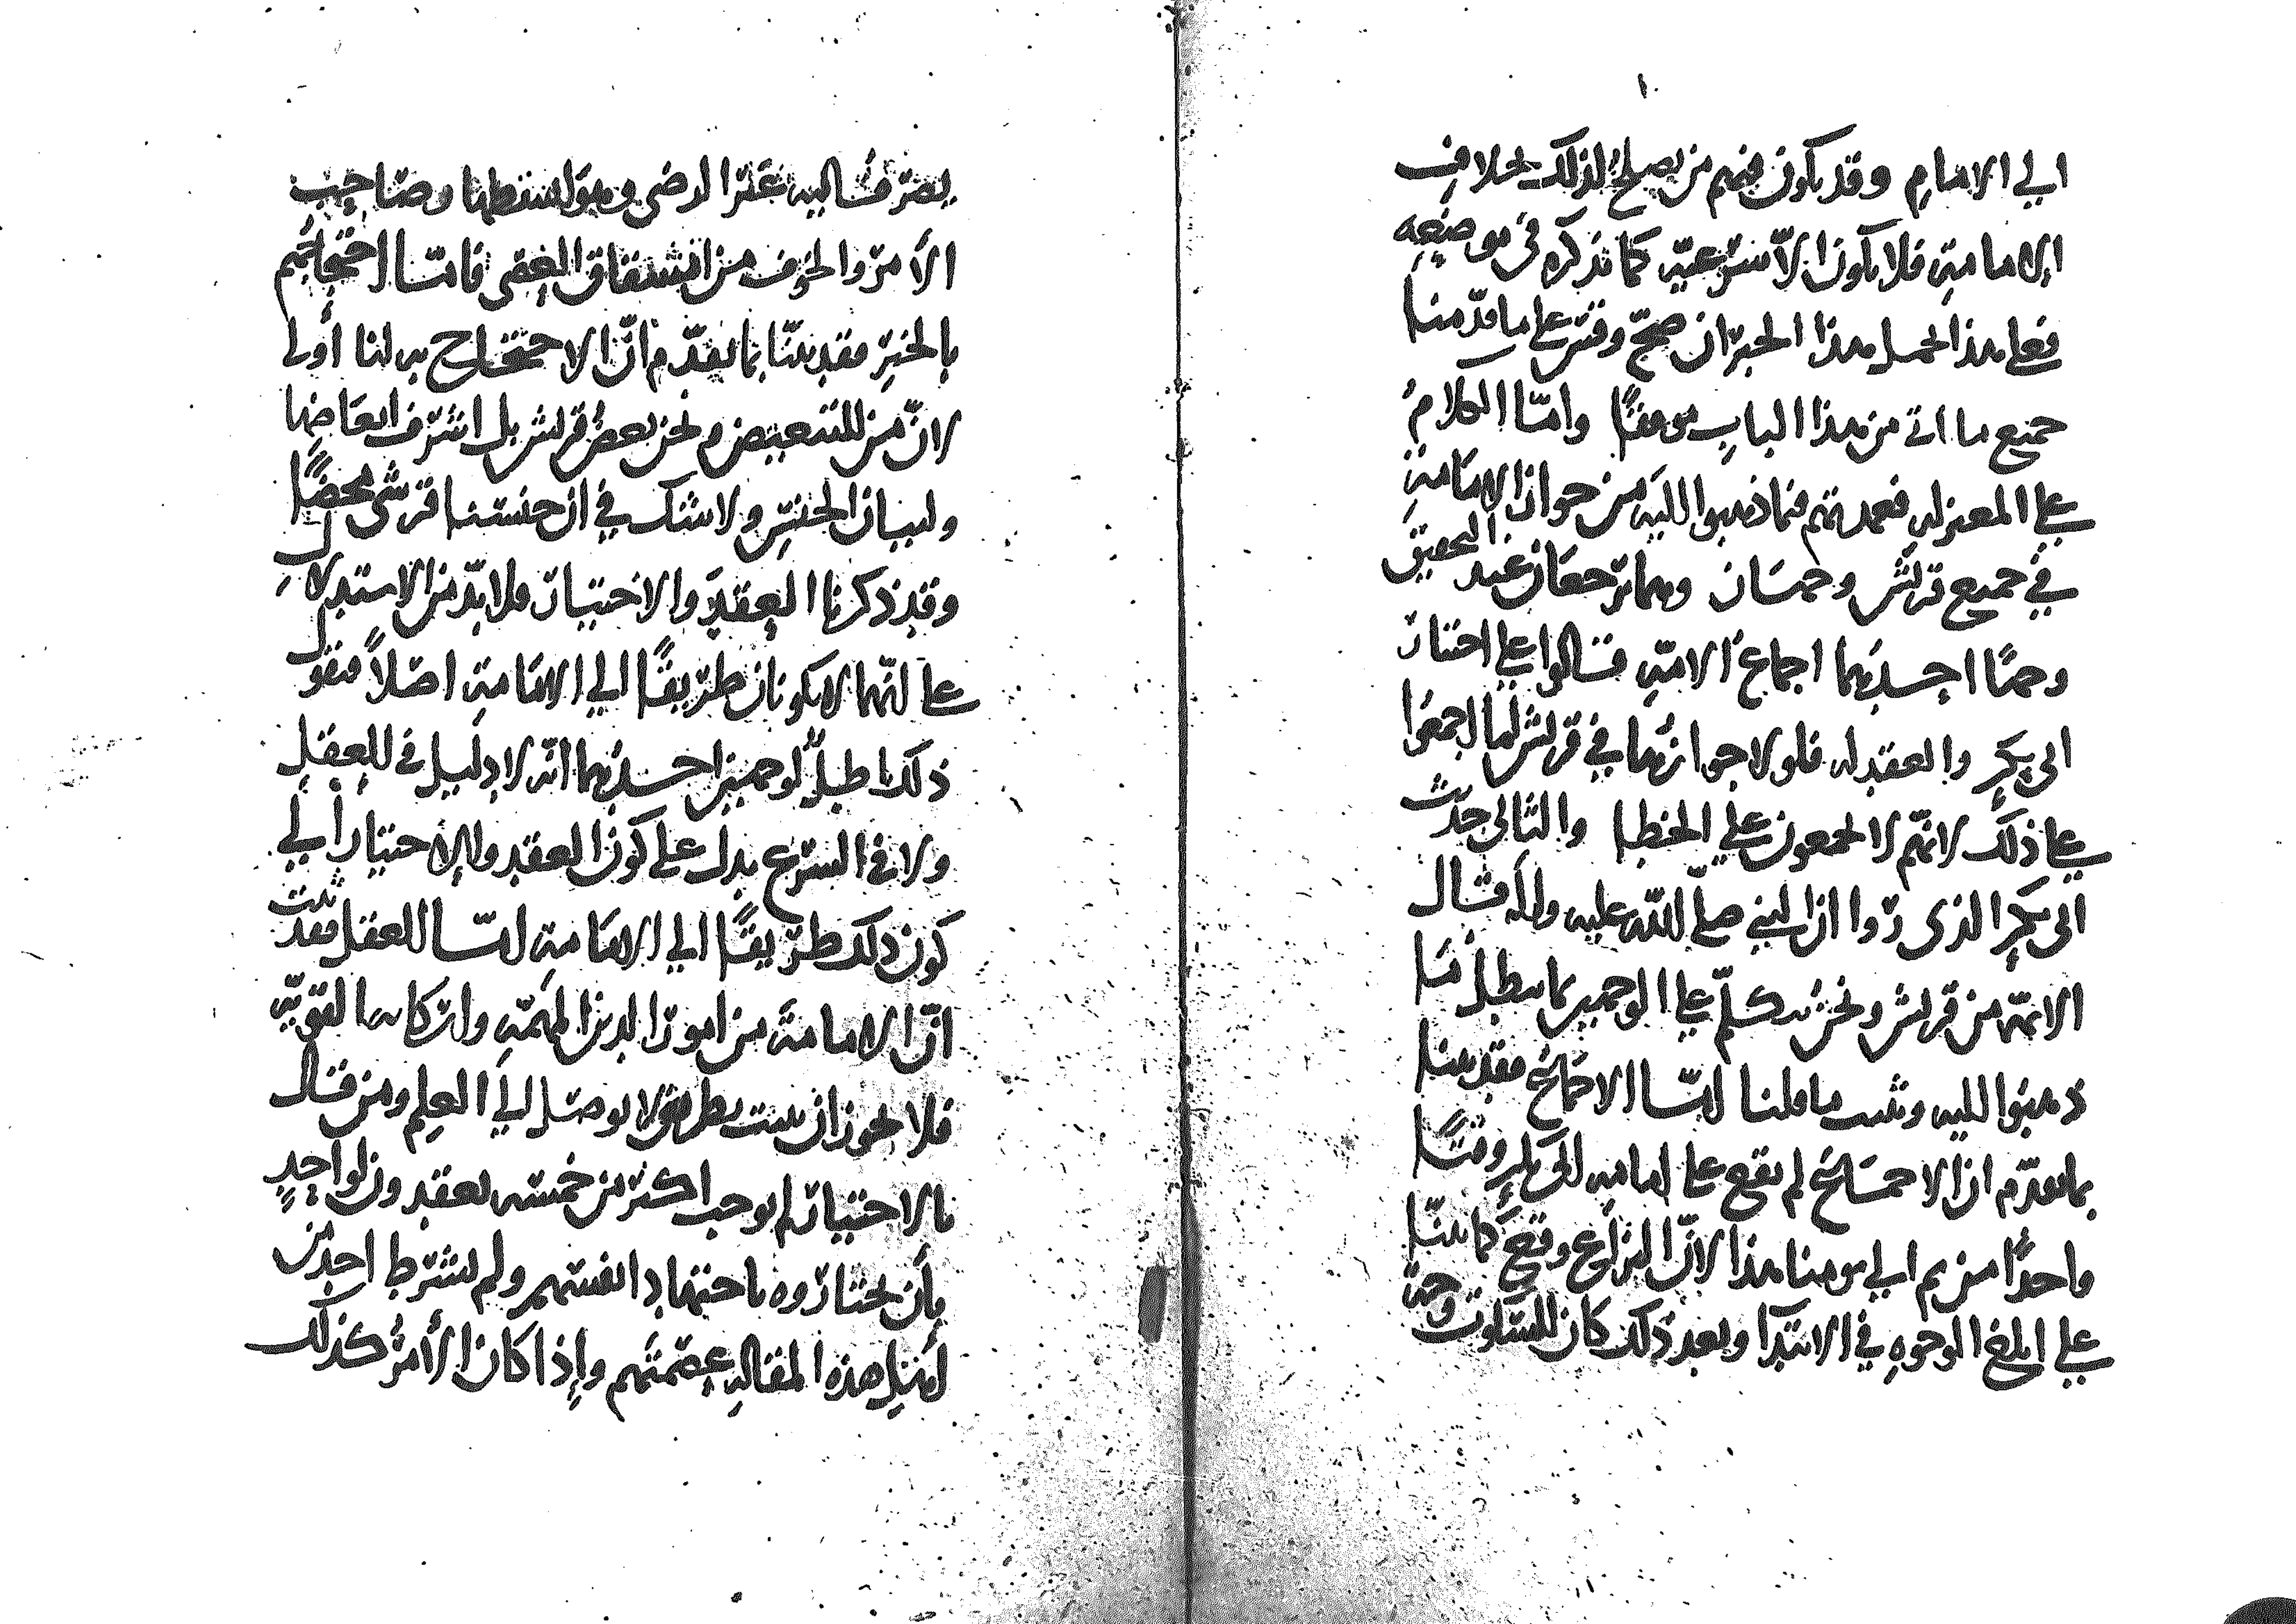 الى الامام وقد يكون فيهم من يصلح لذلك بخلاف
الامامة فلا يكون الا شرعية كما نذكره في موضعه
فعلى هذا يحمل هذا الخبر ان صح وقس على ما قدمنا
جميع ما اتى من هذا الباب موفقا واما الكلام
على المعتزلة فعمدتهم فيما ذهبوا اليه من جواز الامامة
في جميع قريش وجهان وهما ترجعان عند التحقيق
وجها احدهما اجماع الامة قالوا على اختيار
ابي بكر والعقد له فلولا جوازهما في قريش لما اجمعوا
على ذلك لانهم لا يجمعون على الخطا والثاني حديث
ابي بكر الذي روا ان النبي صلى الله عليه واله قال
الائمة من قريش ونحن نتكلم على الوجهين بما يبطل ما
ذهبوا اليه ويثبت ما قلنا اما الاجماع فقد بينا
بما تقدم ان الاجماع لم يقع على امامة ابي بكر وقتا
واحدا من ثم الى يومنا هذا لان النزاع وقع كما بينا
على ابلغ الوجوه في الابتدا وبعد ذلك كان للسكوت وجه
يصرف اليه غير الرضى وهو استظها وصاحب
الأمر والخوف من انشقاق العصى فاما احتجاجهم
بالخبر فقد بينا بما تقدم ان الاحتجاج به لنا أولى
لان من للتبعيض ونحن بعض قريش بل اشرف ابعاضها
ولبيان الجنس ولا شك في ان جنسنا قرشي محضا
وقد ذكرنا العقد والاختيار فلا بد من الاستدلال
على انهما لا يكونان طريقا الى الامامة اصلا فنقول
ذلك باطل لوجهين احدهما انه لا دليل في العقل
ولا في الشرع يدل على كون العقد والاختيار الى
كون ذلك طريقا الى الامامة اما العقل فقد ثبت
ان الامامة من امور الدين المهمة واركانه القوية
فلا يجوز ان تثبت بطريق لا يوصل الى العلم ومن قال
بالاختيار لم يوجب اكثر من خمسة يعقدون لواحد
بأن يختاروه باجتهاد انفسهم ولم يشترط احد من
أهل هذه المقالة عصمتهم وإذا كان الأمر كذلك